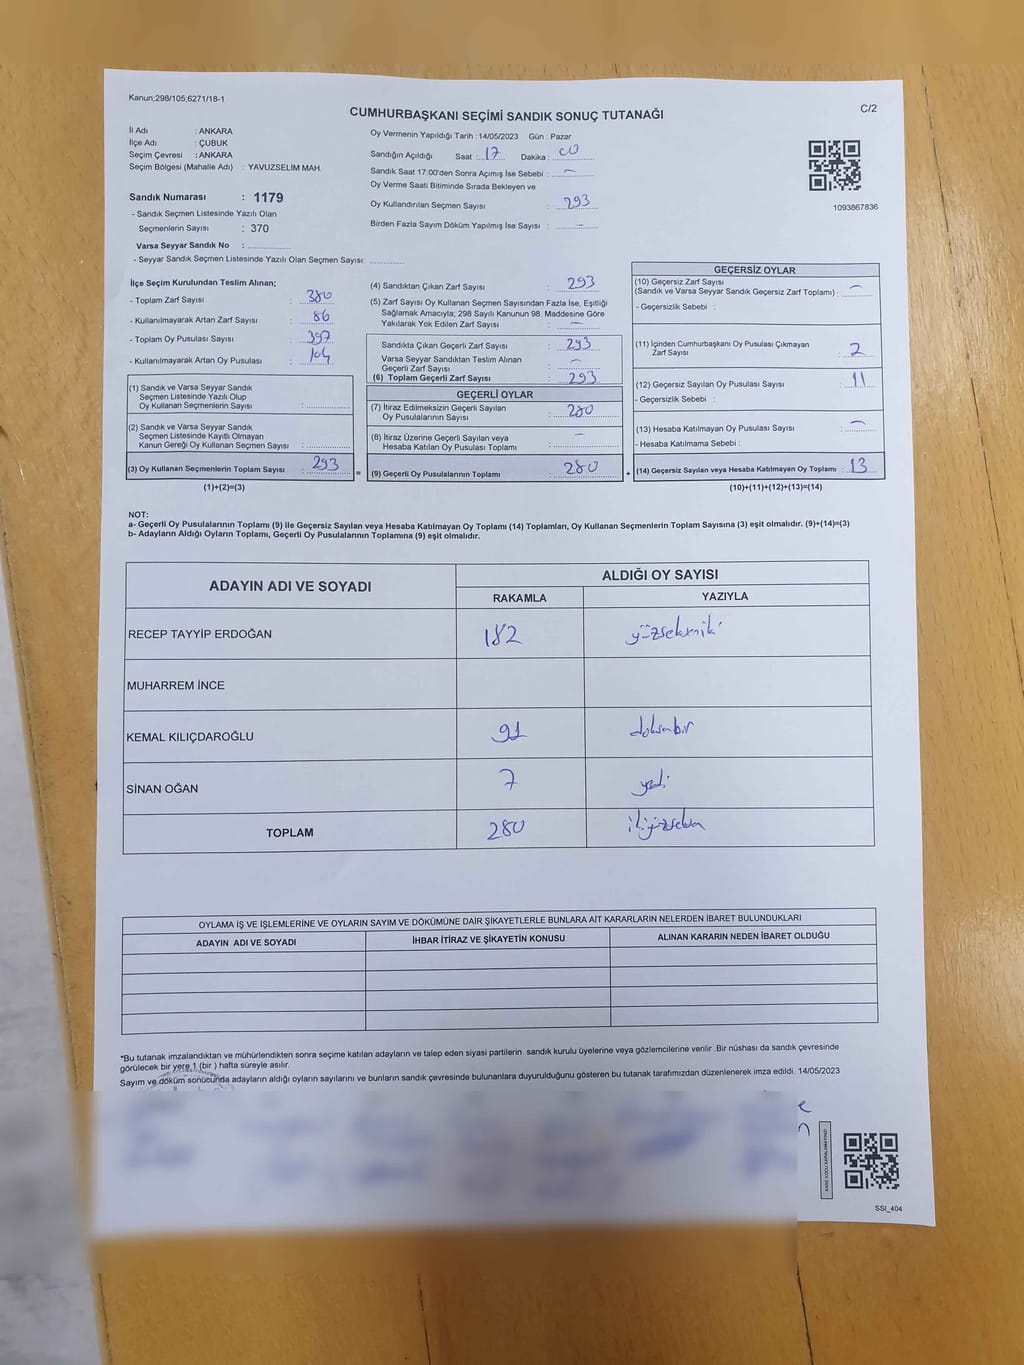 Kanun;298/105;6271/18-1
C/2
CUMHURBAŞKANI SEÇİMİ SANDIK SONUÇ TUTANAĞI
İl Adı : ANKARA
İlçe Adı : ÇUBUK
Seçim Çevresi : ANKARA
Seçim Bölgesi (Mahalle Adı) : YAVUZSELİM MAH.
Sandık Numarası : 1179
- Sandık Seçmen Listesinde Yazılı Olan
Seçmenlerin Sayısı : 370
Varsa Seyyar Sandık No :
- Seyyar Sandık Seçmen Listesinde Yazılı Olan Seçmen Sayısı:
Oy Vermenin Yapıldığı Tarih :14/05/2023 Gün : Pazar
Sandığın Açıldığı Saat : 17 Dakika : 00
Sandık Saat 17:00'den Sonra Açımış İse Sebebi : -
Oy Verme Saati Bitiminde Sırada Bekleyen ve
Oy Kullandırılan Seçmen Sayısı : 293
Birden Fazla Sayım Döküm Yapılmış İse Sayısı : -
1093867836
İlçe Seçim Kurulundan Teslim Alınan;
- Toplam Zarf Sayısı : 380
- Kullanılmayarak Artan Zarf Sayısı : 86
- Toplam Oy Pusulası Sayısı : 397
- Kullanılmayarak Artan Oy Pusulası : 104
(1) Sandık ve Varsa Seyyar Sandık
Seçmen Listesinde Yazılı Olup
Oy Kullanan Seçmenlerin Sayısı :
(2) Sandık ve Varsa Seyyar Sandık
Seçmen Listesinde Kayıtlı Olmayan
Kanun Gereği Oy Kullanan Seçmen Sayısı :
(3) Oy Kullanan Seçmenlerin Toplam Sayısı : 293
(1)+(2)=(3)
(4) Sandıktan Çıkan Zarf Sayısı : 293
(5) Zarf Sayısı Oy Kullanan Seçmen Sayısından Fazla İse, Eşitliği
Sağlamak Amacıyla; 298 Sayılı Kanunun 98. Maddesine Göre
Yakılarak Yok Edilen Zarf Sayısı : -
Sandıkta Çıkan Geçerli Zarf Sayısı : 293
Varsa Seyyar Sandıktan Teslim Alınan
Geçerli Zarf Sayısı : -
(6) Toplam Geçerli Zarf Sayısı : 293
GEÇERLİ OYLAR
(7) İtiraz Edilmeksizin Geçerli Sayılan
Oy Pusulalarının Sayısı : 280
(8) İtiraz Üzerine Geçerli Sayılan veya
Hesaba Katılan Oy Pusulası Sayısı : -
= (9) Geçerli Oy Pusulalarının Toplamı : 280 +
GEÇERSİZ OYLAR
(10) Geçersiz Zarf Sayısı
(Sandık ve Varsa Seyyar Sandık Geçersiz Zarf Toplamı) : -
- Geçersizlik Sebebi :
(11) İçinden Cumhurbaşkanı Oy Pusulası Çıkmayan
Zarf Sayısı : 2
(12) Geçersiz Sayılan Oy Pusulası Sayısı : 11
- Geçersizlik Sebebi :
(13) Hesaba Katılmayan Oy Pusulası Sayısı : -
- Hesaba Katılmama Sebebi :
(14) Geçersiz Sayılan veya Hesaba Katılmayan Oy Toplamı : 13
(10)+(11)+(12)+(13)=(14)
NOT:
a- Geçerli Oy Pusulalarının Toplamı (9) ile Geçersiz Sayılan veya Hesaba Katılmayan Oy Toplamı (14) Toplamları, Oy Kullanan Seçmenlerin Toplam Sayısına (3) eşit olmalıdır. (9)+(14)=(3)
b- Adayların Aldığı Oyların Toplamı, Geçerli Oy Pusulalarının Toplamına (9) eşit olmalıdır.
ADAYIN ADI VE SOYADI
ALDIĞI OY SAYISI
RAKAMLA YAZIYLA
RECEP TAYYİP ERDOĞAN 182 yüzsekseniki
MUHARREM İNCE
KEMAL KILIÇDAROĞLU 91 doksanbir
SİNAN OĞAN 7 yedi
TOPLAM 280 ikiyüzseksen
OYLAMA İŞ VE İŞLEMLERİNE VE OYLARIN SAYIM VE DÖKÜMÜNE DAİR ŞİKAYETLERLE BUNLARA AİT KARARLARIN NELERDEN İBARET BULUNDUKLARI
ADAYIN ADI VE SOYADI İHBAR İTİRAZ VE ŞİKAYETİN KONUSU ALINAN KARARIN NEDEN İBARET OLDUĞU
*Bu tutanak imzalandıktan ve mühürlendikten sonra seçime katılan adayların ve talep eden siyasi partilerin sandık kurulu üyelerine veya gözlemcilerine verilir .Bir nüshası da sandık çevresinde
görülecek bir yere 1 (bir ) hafta süreyle asılır.
Sayım ve döküm sonucunda adayların aldığı oyların sayılarını ve bunların sandık çevresinde bulunanlara duyurulduğunu gösteren bu tutanak tarafımızdan düzenlenerek imza edildi. 14/05/2023
KARE KODU KARALAMAYINIZ!
SSI_404